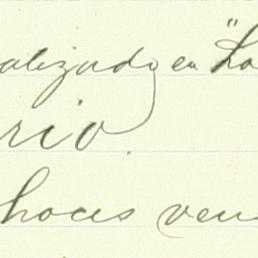 alizado en "La
rio.
hoces vens